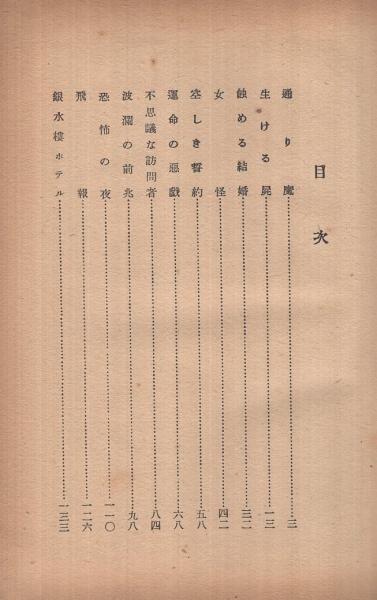 目次
通り魔…………三
生ける屍…………一三
蝕める結婚…………三二
女怪…………四二
空しき誓約…………五八
運命の惡戯…………六八
不思議な訪問者…………八四
波瀾の前兆…………九八
恐怖の夜…………一一〇
飛報…………一二六
銀水樓ホテル…………一三三